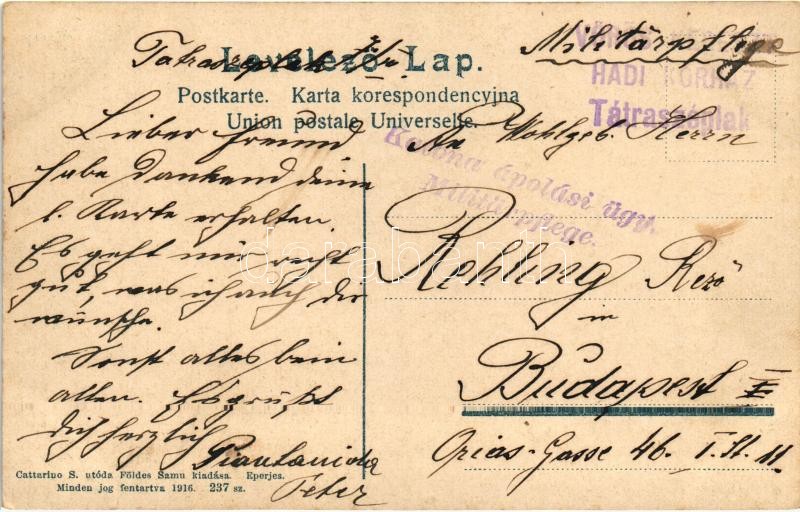 Levelező Lap.
Tátraszéplak
Militärpflege
HADI KÓRHÁZ
Tátraszéplak
Postkarte. Karta korespondencyjna
Union postale Universelle.
Katona ápolási ügy.
Militärpflege.
Lieber Freund
habe dankend deine
l. Karte erhalten.
Es geht mir recht
gut, was ich auch dir
wünsche.
Sonst alles beim
alten. Es grüßt
dich herzlich
Peter
An Wohlgeb. Herrn
Rehling Rezső
in
Budapest
Gasse 46. I. St. 11.
darabanth
Cattarino S. utóda Földes Samu kiadása. Eperjes.
Minden jog fentartva 1916. 237 sz.